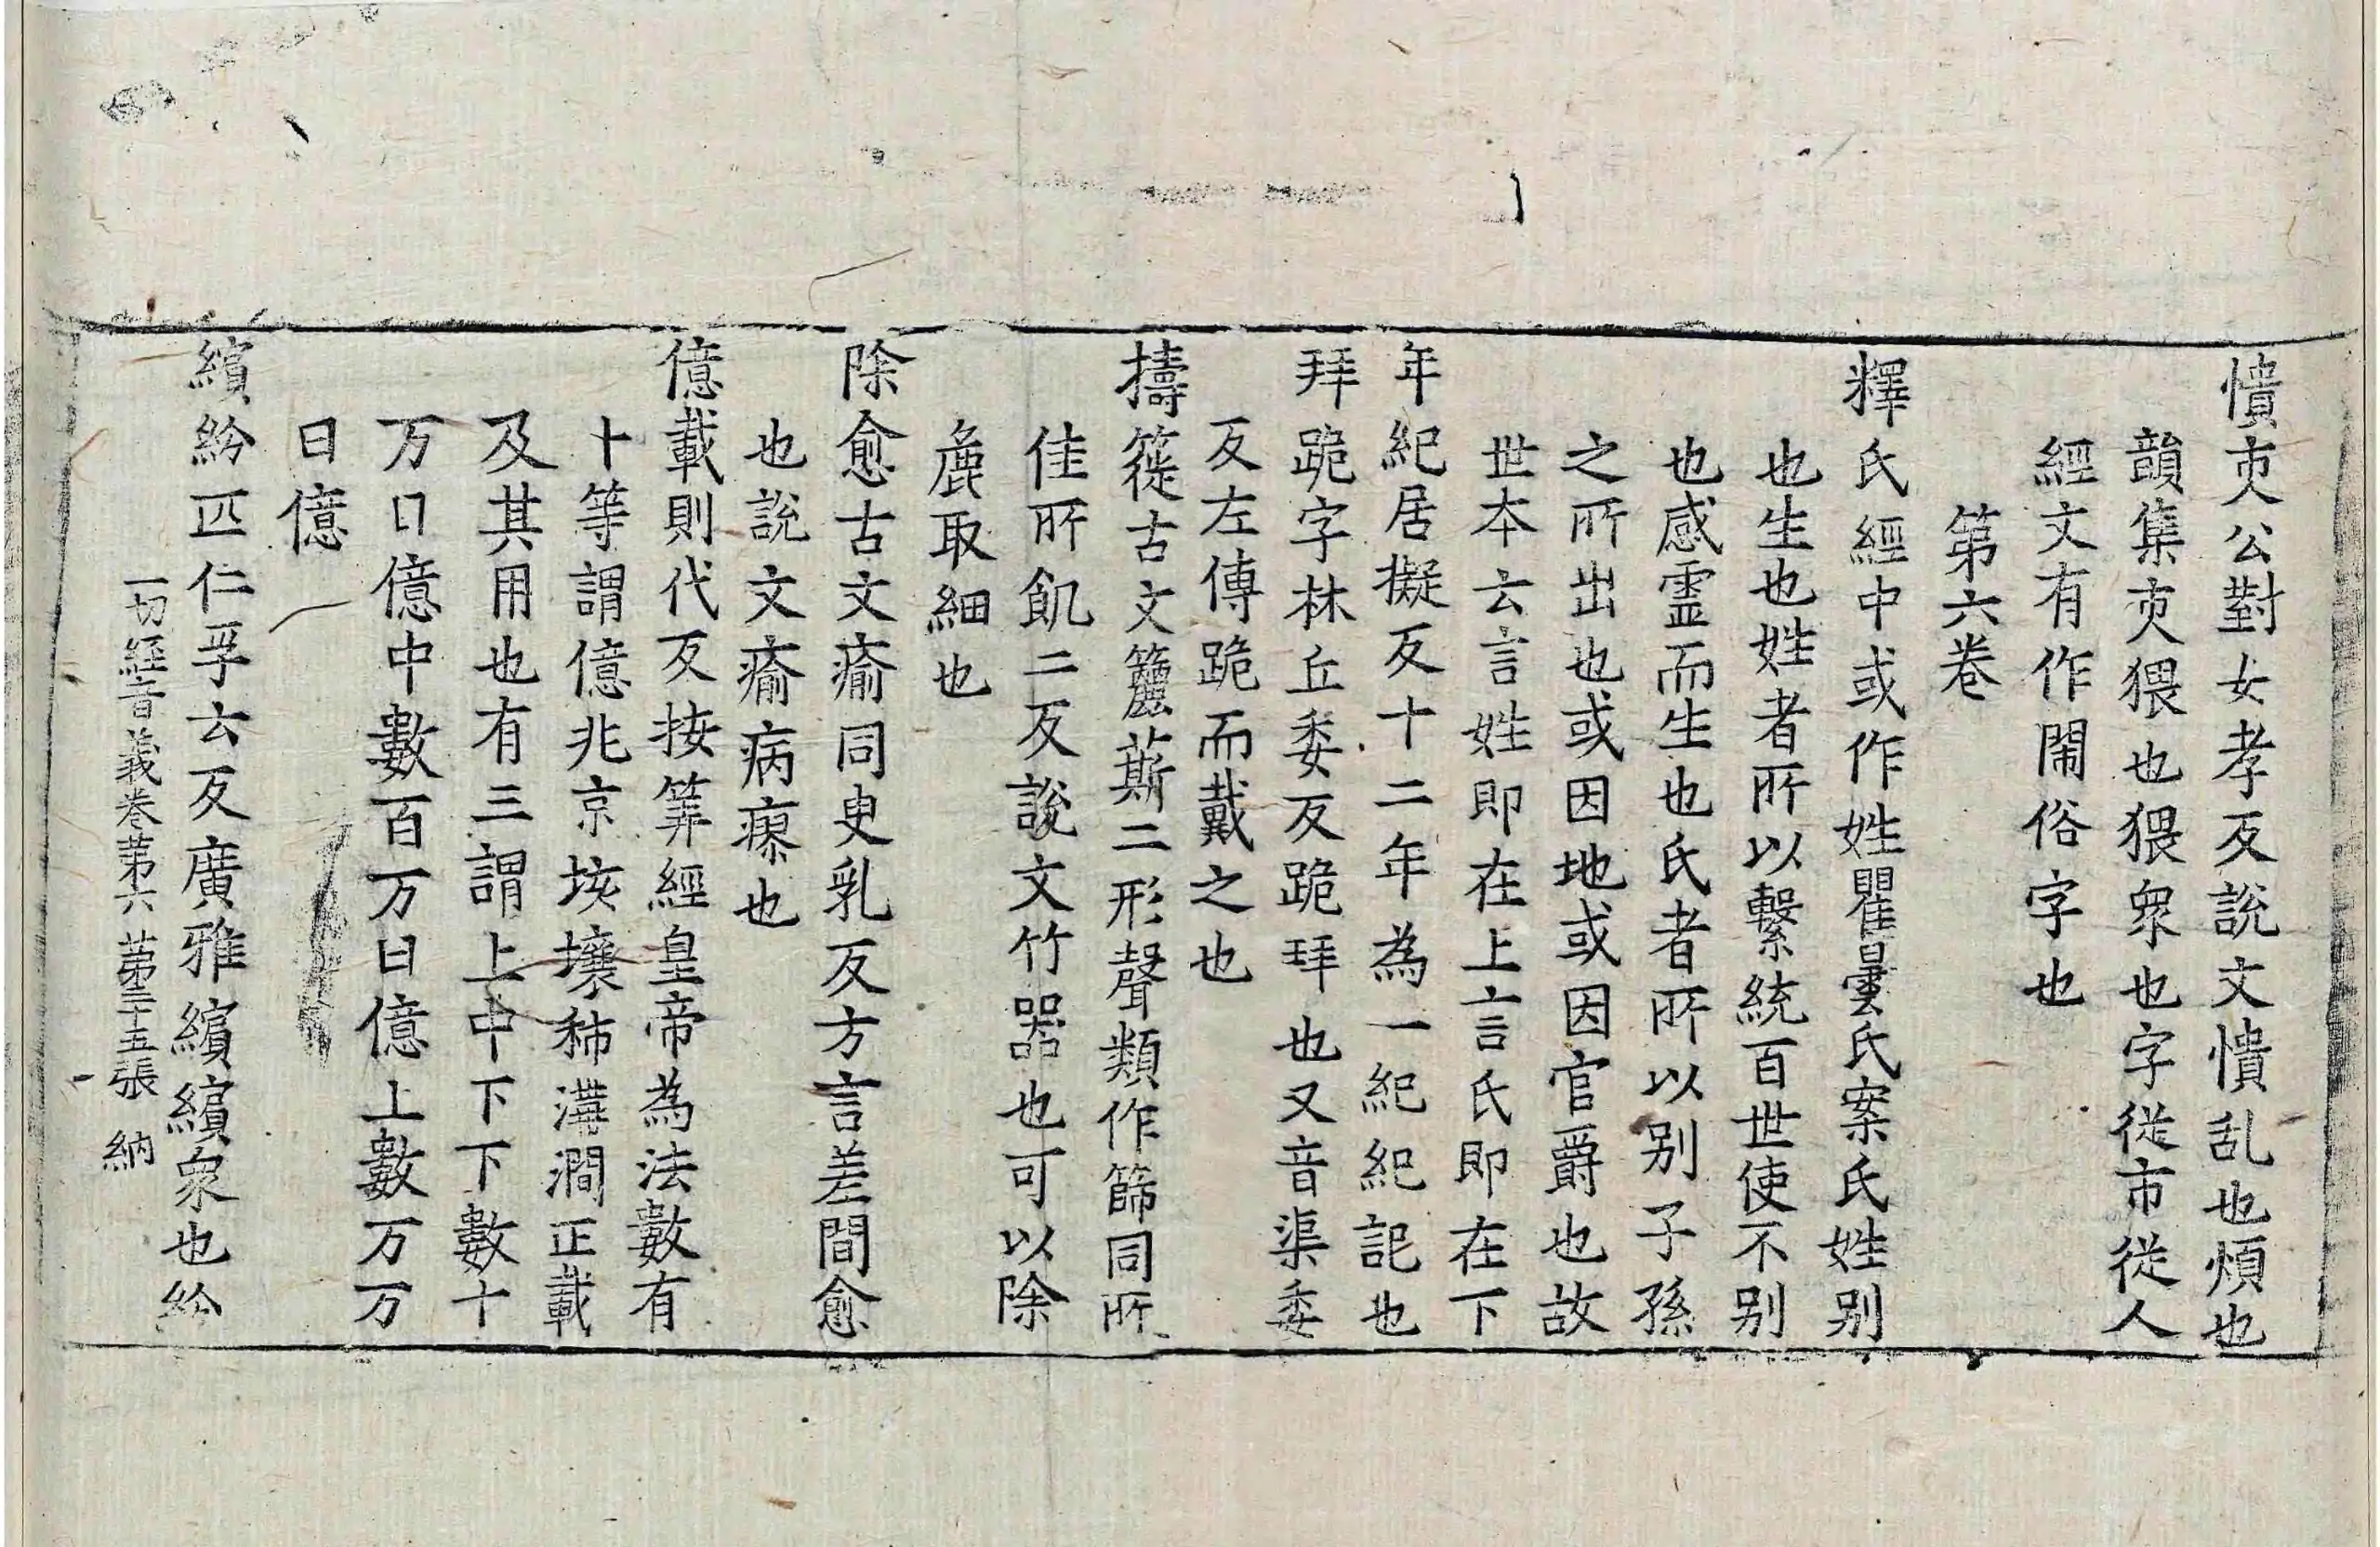 憒㕰公對女孝反說文憒乱也煩也
韻集㕰猥也猥衆也字從市從人
經文有作閙俗字也
第六卷
釋氏經中或作姓瞿曇氏案氏姓別
也生也姓者所以繫統百世使不別
也感霊而生也氏者所以別子孫
之所出也或因地或因官爵也故
世本云言姓即在上言氏即在下
年紀居擬反十二年為一紀紀記也
拜跪字林丘委反跪拜也又音渠委
反左傳跪而戴之也
擣簁古文籭䔮二形聲類作篩同所
佳所飢二反說文竹器也可以除
麁取細也
除愈古文瘉同臾乳反方言差間愈
也說文瘉病瘳也
億載則代反按筭經皇帝為法數有
十等謂億兆京垓壤秭溝澗正載
及其用也有三謂上中下下數十
万曰億中數百万曰億上數万万
曰億
繽紛匹仁孚云反廣雅繽繽衆也紛
一切經音義卷第六 第三十五張 納